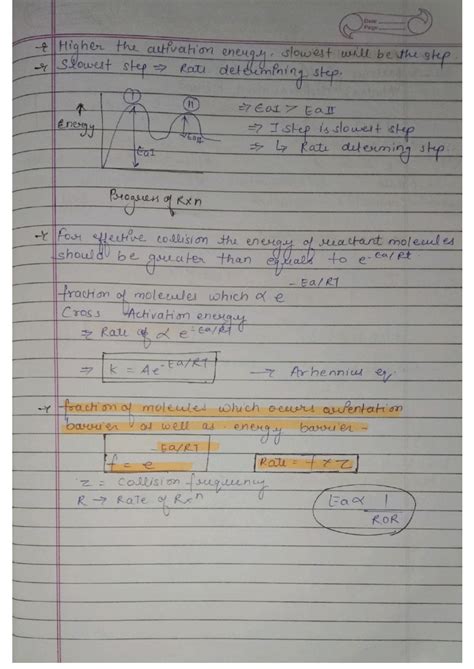 Date
Page
→ Higher the activation energy. slowest will be the step
→ Slowest step ⇒ Rate determining step.
I II
Energy
EaI EaII
⇒ EaI > EaII
⇒ I step is slowest step
⇒ ↳ Rate determing step
Progress of Rxn
→ For effective collision the energy of reactant molecules
should be greater than equals to e^-Ea/Rt
fraction of molecules which α e^-Ea/RT
Cross Activation energy
⇒ Rate of α e^-Ea/RT
⇒ k = Ae^-Ea/RT → Arhennius eq.
→ fraction of molecules which occurs orientation
barrier as well as energy barrier -
f = e^-Ea/RT Rate = f × Z
Z = Collision frequency
R → Rate of Rxn
Ea α 1/ROR